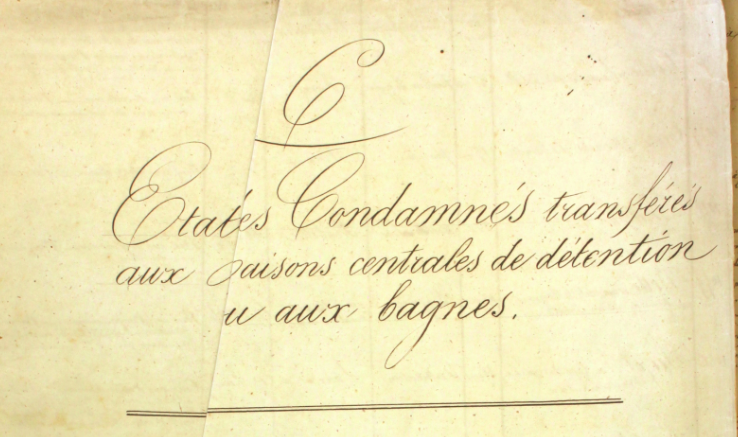 C
Etates Condamnés transférés
aux aisons centrales de détention
u aux bagnes.